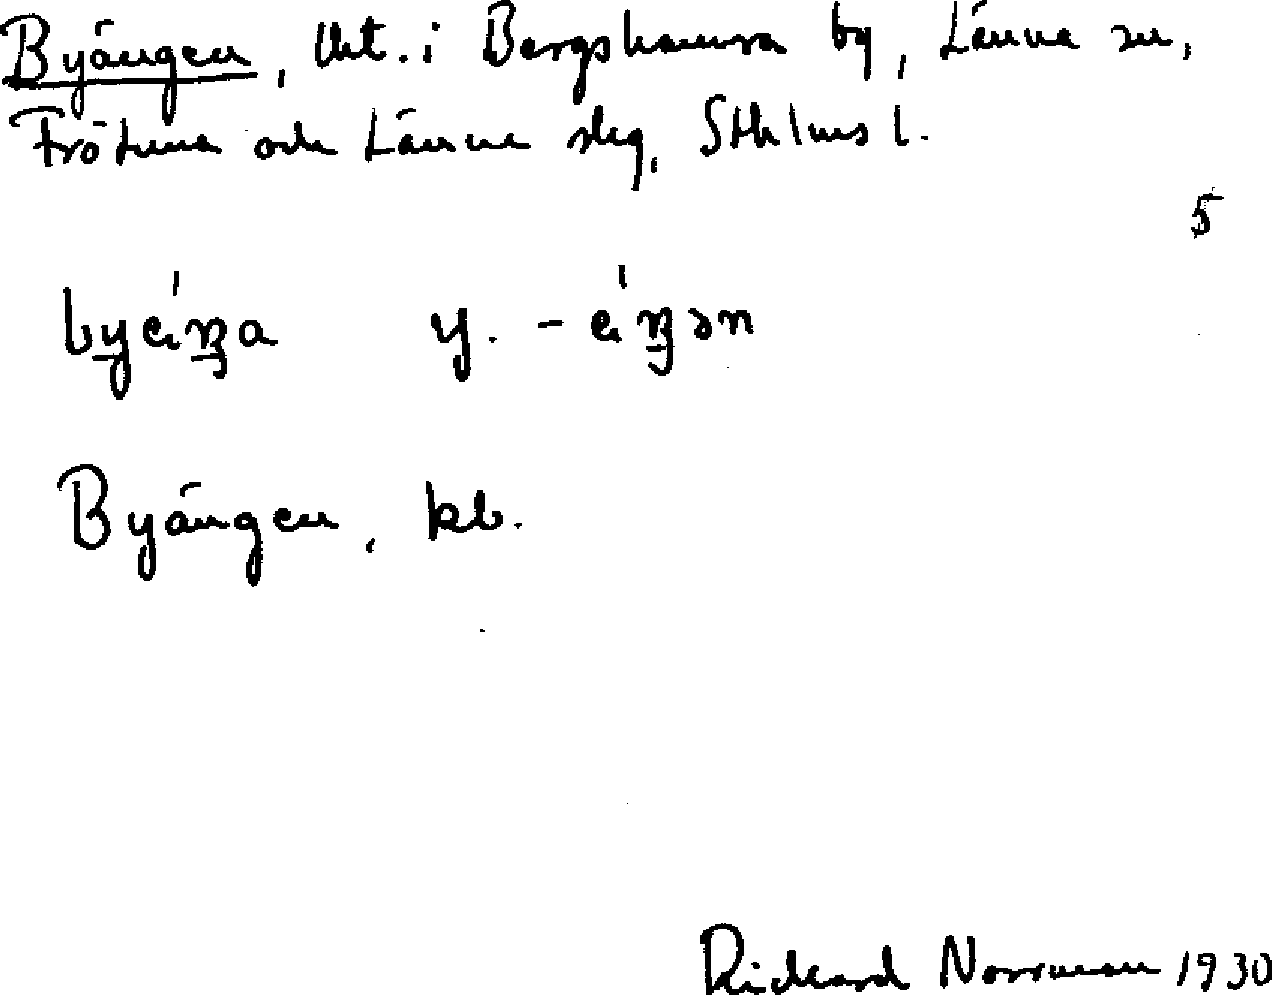 Byängen, Utt. i Bergshamra by, Länna sn,
Frötuna och Länna slg, Sthlms l.
5
byä́ŋa y. -ä́ŋən
Byängen, kb.
Rickard Norrman 1930